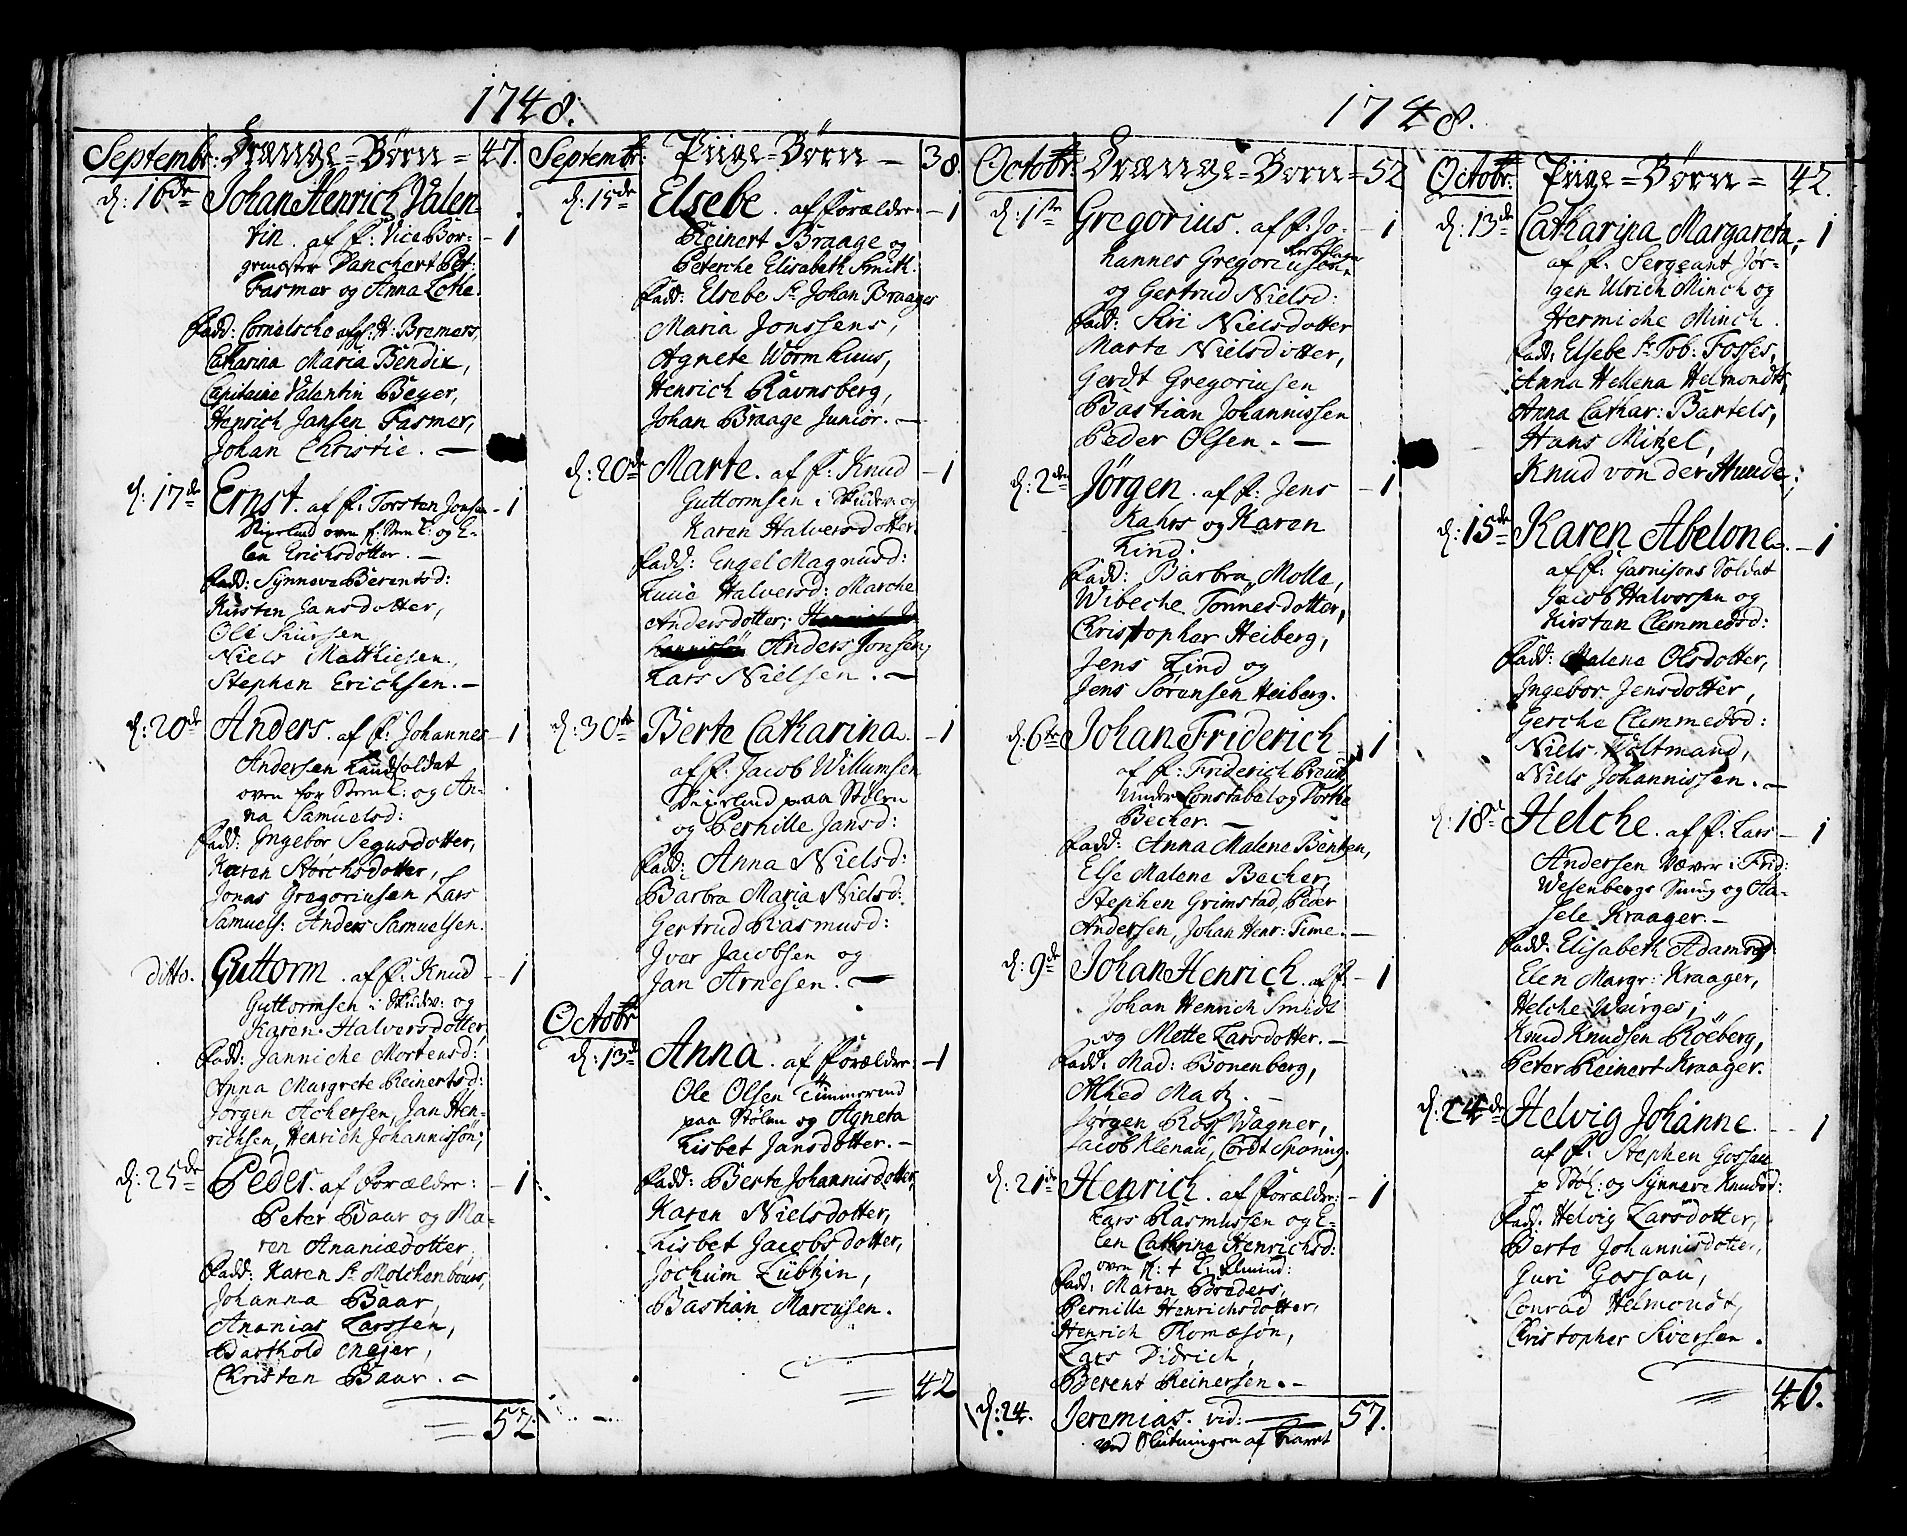 1748.
Septembr: Drænge=Børn = 47.
d: 16de Johan Henrich Valen
tin. af f: Vice Bor= - 1
gemester Danchert Pet:
Fasmer og Anna Lohe.
fadd: Cornelscha afgl: H: Bremers,
Catharina Maria Bendix,
Capitaine Valentin Beyer,
Henrich Jansen Fasmer,
Johan Christie. —
d: 17de Ernst. af f: Torsten Jonsen - 1
og E-
len Erichsdotter. —
fadd: Synneve Berentsd:
Kirsten Jansdotter,
Ole Siursen,
Niels Mathiesen,
Stephen Erichsen. —
d: 20de Anders. af f: Johannes - 1
Andersen Landsoldat
oven for og An-
na Samuelsd:
fadd: Ingebor Segusdotter,
Karen Storchsdotter,
Jonas Gregoriusen Lars
Samuels: Anders Samuelsen.
ditto. Guttorm. af f: Knud - 1
Guttormsen i Skudev: og
Karen Halversdotter,
fadd: Janniche Mortensd:
Anna Margrete Reinertsd:
Jørgen Achersen, Jan Hen-
richsen, Henrich Johannissøn;
d: 25de Peder. af forælder: - 1
Peter Baar og Ma-
ren Ananiædotter,
fadd: Karen Sl Molchenbours,
Johanna Baar,
Ananias Larssen,
Barthold Meyer,
Christen Baar. —
52.
Septembr: Piige=Børn — 38.
d: 15de Elsebe. af forælder: - 1
Reinert Braage og
Peterche Elisabeth Smith.
fadd: Elsebe Sl Johan Braages
Maria Jonssens,
Agnete Wormhuus,
Henrich Ravnsberg,
Johan Braage Junior. —
d: 20de Marte. af f: Knud - 1
Guttormsen i Skudev: og
Karen Halversdotter.
fadd: Engel Magnusd:
Lucie Halversd: Marche
Andersdotter,
Anders Jonsen,
Lars Nielsen. —
d: 30te Berte Catharina. - 1
af f: Jacob Willumsen
paa Stølen
og Pernille Jansd:
fadd: Anna Nielsd:
Barbra Maria Nielsd:
Gertrud Rasmusd:
Iver Jacobsen og
Jan Arnesen. —
Octobr
d: 13de Anna. af forælder: - 1
Ole Olsen Tümmermd
paa Stølen og Agneta
Lisbet Jansdotter. —
fadd: Berte Johannisdotter,
Karen Nielsdotter,
Lisbet Jacobsdotter,
Jochum Lübtzin,
Bastian Marcusen.
42
1748.
Octobr: Drænge=Børn = 52
d: 1ste Gregorius. af f: Jo- - 1
hannes Gregoriusen
og Gertrud Nielsd:
fadd: Siri Nielsdotter
Marte Nielsdotter,
Gerdt Gregoriusen
Bastian Johannissen
Peder Olsen. —
d: 2den Jørgen. af f: Jens - 1
Kahrs og Karen
Lind.
fadd: Barbra Molle,
Wibeche Tønnesdotter,
Christopher Heiberg,
Jens Lind og
Jens Sørensen Heiberg.
d: 6te Johan Friderich - 1
af f: Friderich Preus
Under Constabel og Dorthe
Becker. —
fadd: Anna Malene Bentzen,
Else Malene Becher,
Stephen Grimstad, Peder
Andersen, Johan Henr: Time. —
d: 9de Johan Henrich. af f: - 1
Johan Henrich Smidt
og Mette Larsdotter. —
fadd: Mad: Bonenberg,
Ahlhed Matz. —
Jørgen Ross Wagner,
Jacob Klenau, Cordt Sponing.
d: 21de Henrich. af forælder: - 1
Lars Rasmussen og E-
len Cathrine Henrichsd:
oven
fadd: Maren Breders,
Pernille Henrichsdotter,
Henrich Thomæsøn,
Lars Didrich,
Berent Reinersen. —
57.
d: 24. Jeremias. vid: —
ved Slutningen af Aaret
Octobr: Piige=Børn = 42.
d: 13de Catharina Margareta, - 1
af f: Sergeant Jør-
gen Ulrich Minch og
Hermiche Minch.
fadd: Elsebe Sl Tob: Fosses,
Anna Hellena Helmondts,
Anna Cathar: Bartels,
Hans Mitzel,
Knud von der Hunde;
d: 15de Karen Abelone. - 1
af f: Garnisons Soldat
Jacob Halvorsen og
Kirsten Clemmedsd:
fadd: Malene Olsdotter,
Ingebor Jensdotter,
Gerche Clemmedsd:
Niels Woltmand,
Niels Johannissen. —
d: 18de Helche. af f: Lars - 1
Andersen Væver i Frid:
Wesenbergs Smug og Aa-
sele Kraager. —
fadd: Elisabeth Adamsd:
Elen Margr: Kraager,
Helche Wairges;
Knud Knudsen Röeberg,
Peter Reinert Kraager.
d: 24de Helvig Johanne. - 1
af f: Stephen Gossau
p Støl: og Synneve Knudsd:
fadd: Helvig Larsdotter,
Berte Johannisdotter,
Guri Gossau,
Conrad Helmondt,
Christopher Siversen.
46.